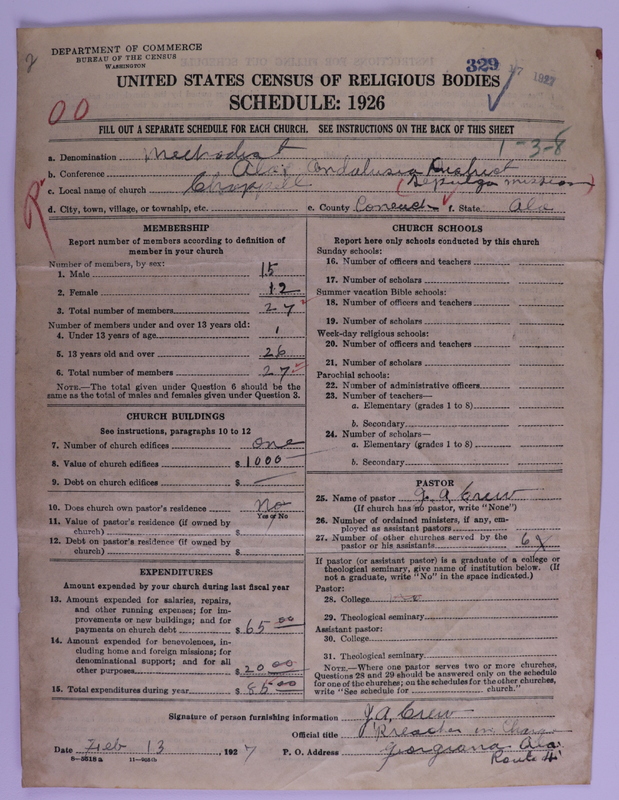 DEPARTMENT OF COMMERCE
BUREAU OF THE CENSUS
WASHINGTON
329
17 1927
UNITED STATES CENSUS OF RELIGIOUS BODIES
SCHEDULE: 1926
00
FILL OUT A SEPARATE SCHEDULE FOR EACH CHURCH. SEE INSTRUCTIONS ON THE BACK OF THIS SHEET
1-3-8
a. Denomination Methodist
b. Conference Ala. Andalusia District
c. Local name of church Chappell (Sepulga mission)
d. City, town, village, or township, etc. e. County Conecuh f. State Ala
MEMBERSHIP
Report number of members according to definition of
member in your church
Number of members, by sex:
1. Male 15
2. Female 12
3. Total number of members 27
Number of members under and over 13 years old:
4. Under 13 years of age 1
5. 13 years old and over 26
6. Total number of members 27
NOTE.—The total given under Question 6 should be the
same as the total of males and females given under Question 3.
CHURCH BUILDINGS
See instructions, paragraphs 10 to 12
7. Number of church edifices One
8. Value of church edifices $ 1000
9. Debt on church edifices $ —
10. Does church own pastor's residence No
Yes or No
11. Value of pastor's residence (if owned by
church) $
12. Debt on pastor's residence (if owned by
church) $
EXPENDITURES
Amount expended by your church during last fiscal year
13. Amount expended for salaries, repairs,
and other running expenses; for im-
provements or new buildings; and for
payments on church debt $ 65 00
14. Amount expended for benevolences, in-
cluding home and foreign missions; for
denominational support; and for all
other purposes $ 20 00
15. Total expenditures during year $ 85 00
CHURCH SCHOOLS
Report here only schools conducted by this church
Sunday schools:
16. Number of officers and teachers
17. Number of scholars
Summer vacation Bible schools:
18. Number of officers and teachers
19. Number of scholars
Week-day religious schools:
20. Number of officers and teachers
21. Number of scholars
Parochial schools:
22. Number of administrative officers
23. Number of teachers—
a. Elementary (grades 1 to 8)
b. Secondary
24. Number of scholars—
a. Elementary (grades 1 to 8)
b. Secondary
PASTOR
25. Name of pastor J. A. Crew
(If church has no pastor, write "None")
26. Number of ordained ministers, if any, em-
ployed as assistant pastors
27. Number of other churches served by the
pastor or his assistants 6
If pastor (or assistant pastor) is a graduate of a college or
theological seminary, give name of institution below. (If
not a graduate, write "No" in the space indicated.)
Pastor:
28. College no
29. Theological seminary
Assistant pastor:
30. College
31. Theological seminary
NOTE.—Where one pastor serves two or more churches,
Questions 28 and 29 should be answered only on the schedule
for one of the churches; on the schedules for the other churches,
write "See schedule for church."
Signature of person furnishing information J. A. Crew
Official title Preacher in Charge
Date Feb 13, 1927 P. O. Address Georgiana Ala.
Route 4